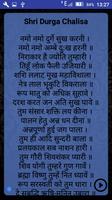 13:27
Shri Durga Chalisa
नमो नमो दुर्गे सुख करनी ।
नमो नमो अम्बे दुःख हरनी ॥
निराकार है ज्योति तुम्हारी ।
तिहूं लोक फैली उजियारी ॥
शशि ललाट मुख महाविशाला ।
नेत्र लाल भृकुटि विकराला ॥
रूप मातु को अधिक सुहावे ।
दरश करत जन अति सुख पावे ॥
तुम संसार शक्ति लय कीना ।
पालन हेतु अन्न धन दीना ॥
अन्नपूर्णा हुई जग पाला ।
तुम ही आदि सुन्दरी बाला ॥
प्रलयकाल सब नाशन हारी ।
तुम गौरी शिव शंकर प्यारी ॥
शिव योगी तुम्हरे गुण गावें ।
ब्रह्मा विष्णु तुम्हें नित ध्यावें ॥
रूप सरस्वती को तुम धारा ।